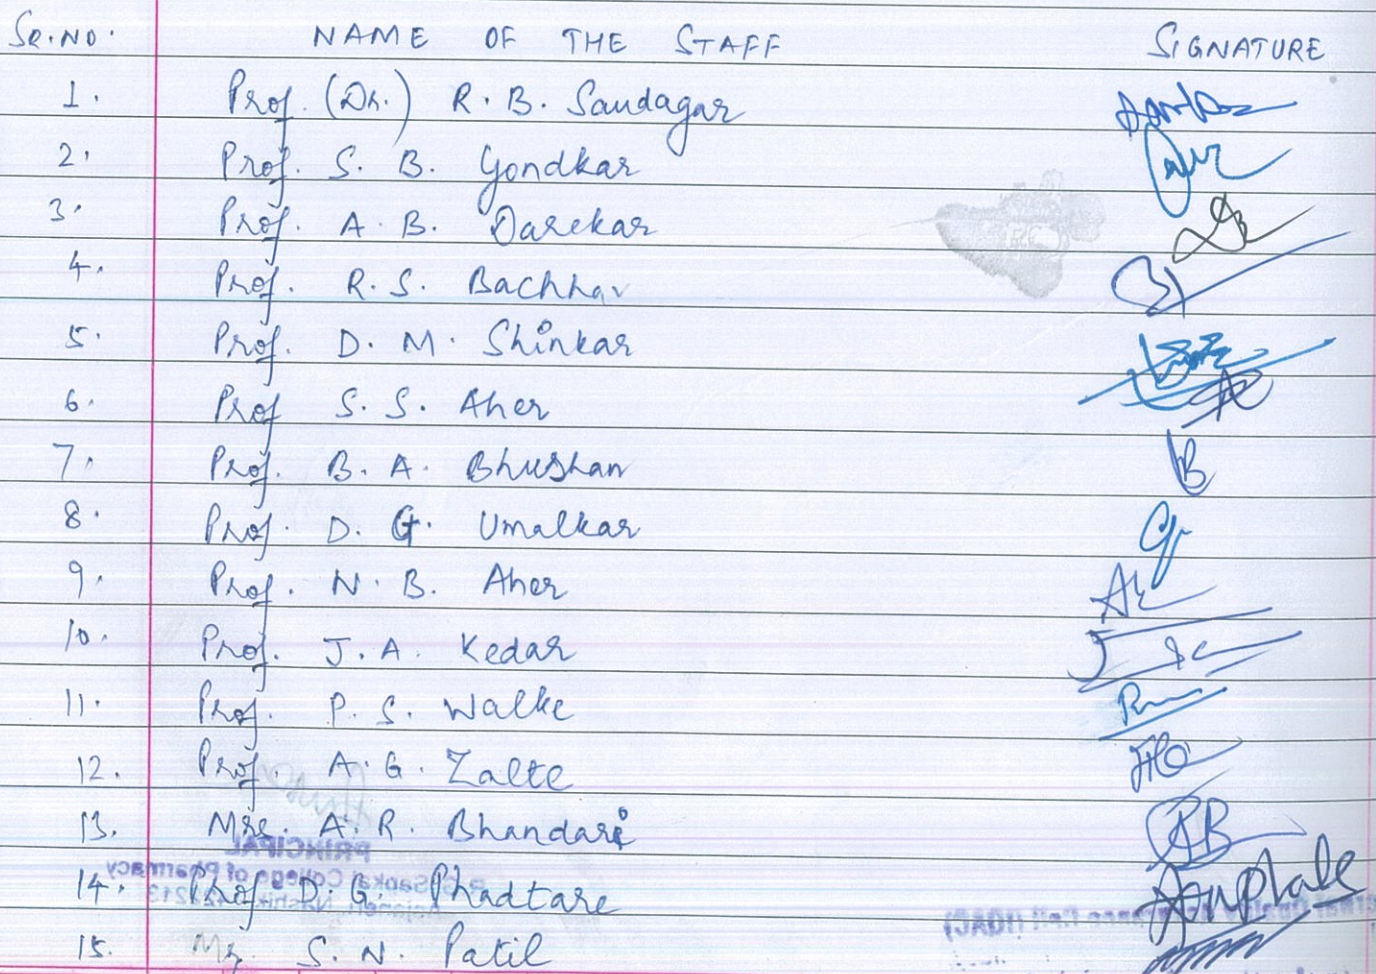 Sr.No. NAME OF THE STAFF SIGNATURE
1. Prof. (Dr.) R. B. Saudagar
2. Prof. S. B. Gondkar
3. Prof. A. B. Darekar
4. Prof. R. S. Bachhav
5. Prof. D. M. Shinkar
6. Prof S. S. Aher
7. Prof. B. A. Bhushan
8. Prof. D. G. Umalkar
9. Prof. N. B. Aher
10. Prof. J. A. Kedar
11. Prof. P. S. Walke
12. Prof. A. G. Zalte
13. Mrs. A. R. Bhandari
PRINCIPAL
14. Prof D. G. Phadtare
15. Mr. S. N. Patil